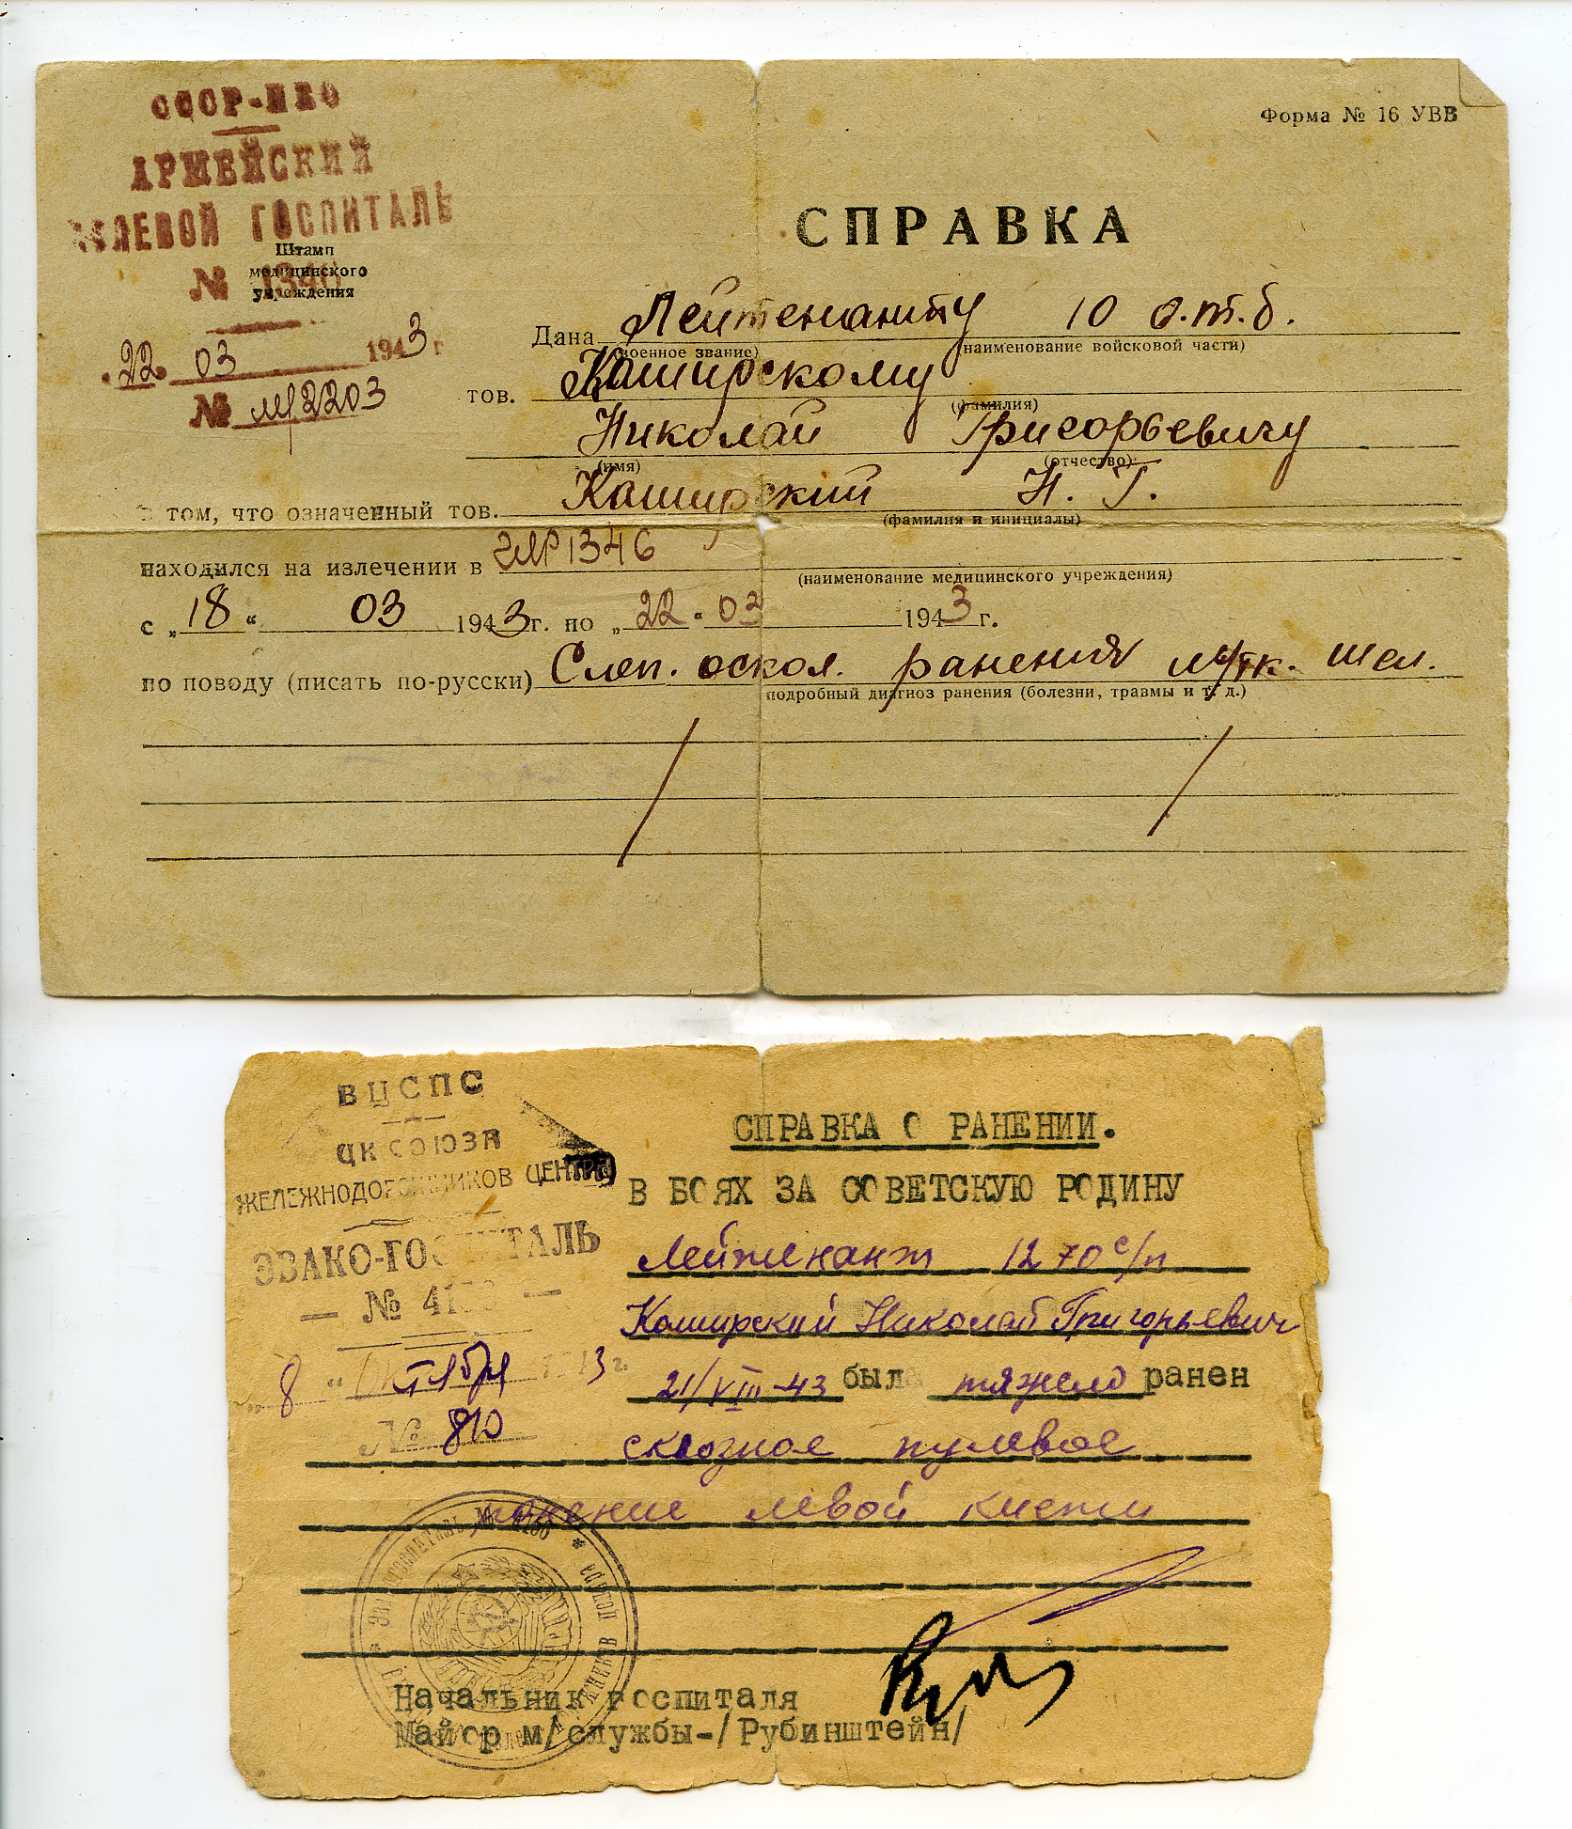 СССР-НКО
АРМЕЙСКИЙ
ПОЛЕВОЙ ГОСПИТАЛЬ
№
Штамп
медицинского
учреждения
22 03 1943 г
№ 2203
Форма № 16 УВВ
СПРАВКА
Дана Лейтенанту 10 о.т.б.
(военное звание) (наименование войсковой части)
тов. Каширскому
(фамилия)
Николай Григорьевичу
(имя) (отчество)
В том, что означенный тов. Каширский Н. Г.
(фамилия и инициалы)
находился на излечении в 1346
(наименование медицинского учреждения)
с „18“ 03 1943 г. по „22“ 03 1943 г.
по поводу (писать по-русски) Слеп. оскол. ранения м/тк. шеи.
подробный диагноз ранения (болезни, травмы и т. д.)
ВЦСПС
ЦК СОЮЗА
ЖЕЛЕЖНОДОРОЖНИКОВ ЦЕНТРА
ЭВАКО-ГОСПИТАЛЬ
— № —
„8“ октября 1943 г.
№ 810
СПРАВКА О РАНЕНИИ.
В БОЯХ ЗА СОВЕТСКУЮ РОДИНУ
Лейтенант 1270 с/п
Каширский Николай Григорьевич
21/VIII-43 был тяжело ранен
сквозное пулевое
ранение левой кисти
Начальник госпиталя
Майор м/службы-/Рубинштейн/